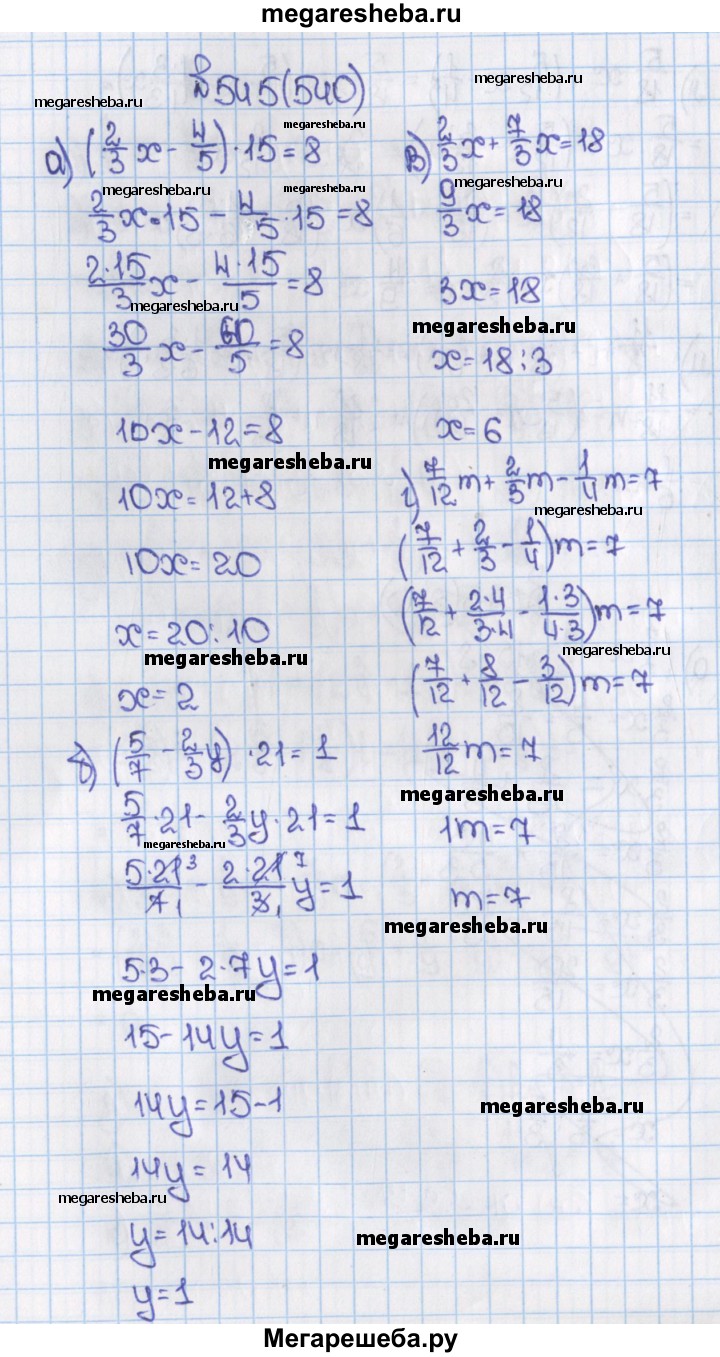 megaresheba.ru
№545(540)
megaresheba.ru
megaresheba.ru
а) (2/3 x - 4/5) · 15 = 8
megaresheba.ru
megaresheba.ru
2/3 x · 15 - 4/5 · 15 = 8
2·15/3 x - 4·15/5 = 8
megaresheba.ru
30/3 x - 60/5 = 8
10x - 12 = 8
megaresheba.ru
10x = 12 + 8
10x = 20
x = 20 : 10
megaresheba.ru
x = 2
б) (5/7 - 2/3 y) · 21 = 1
5/7 · 21 - 2/3 y · 21 = 1
megaresheba.ru
5·21³/7₁ - 2·21⁷/3₁ y = 1
5·3 - 2·7y = 1
megaresheba.ru
15 - 14y = 1
14y = 15 - 1
14y = 14
megaresheba.ru
y = 14 : 14
y = 1
в) 2/3 x + 7/3 x = 18
megaresheba.ru
9/3 x = 18
3x = 18
megaresheba.ru
x = 18 : 3
x = 6
г) 7/12 m + 2/3 m - 1/4 m = 7
megaresheba.ru
(7/12 + 2/3 - 1/4) m = 7
(7/12 + 2·4/3·4 - 1·3/4·3) m = 7
megaresheba.ru
(7/12 + 8/12 - 3/12) m = 7
12/12 m = 7
megaresheba.ru
1m = 7
m = 7
megaresheba.ru
megaresheba.ru
megaresheba.ru
Мегарешеба.ру